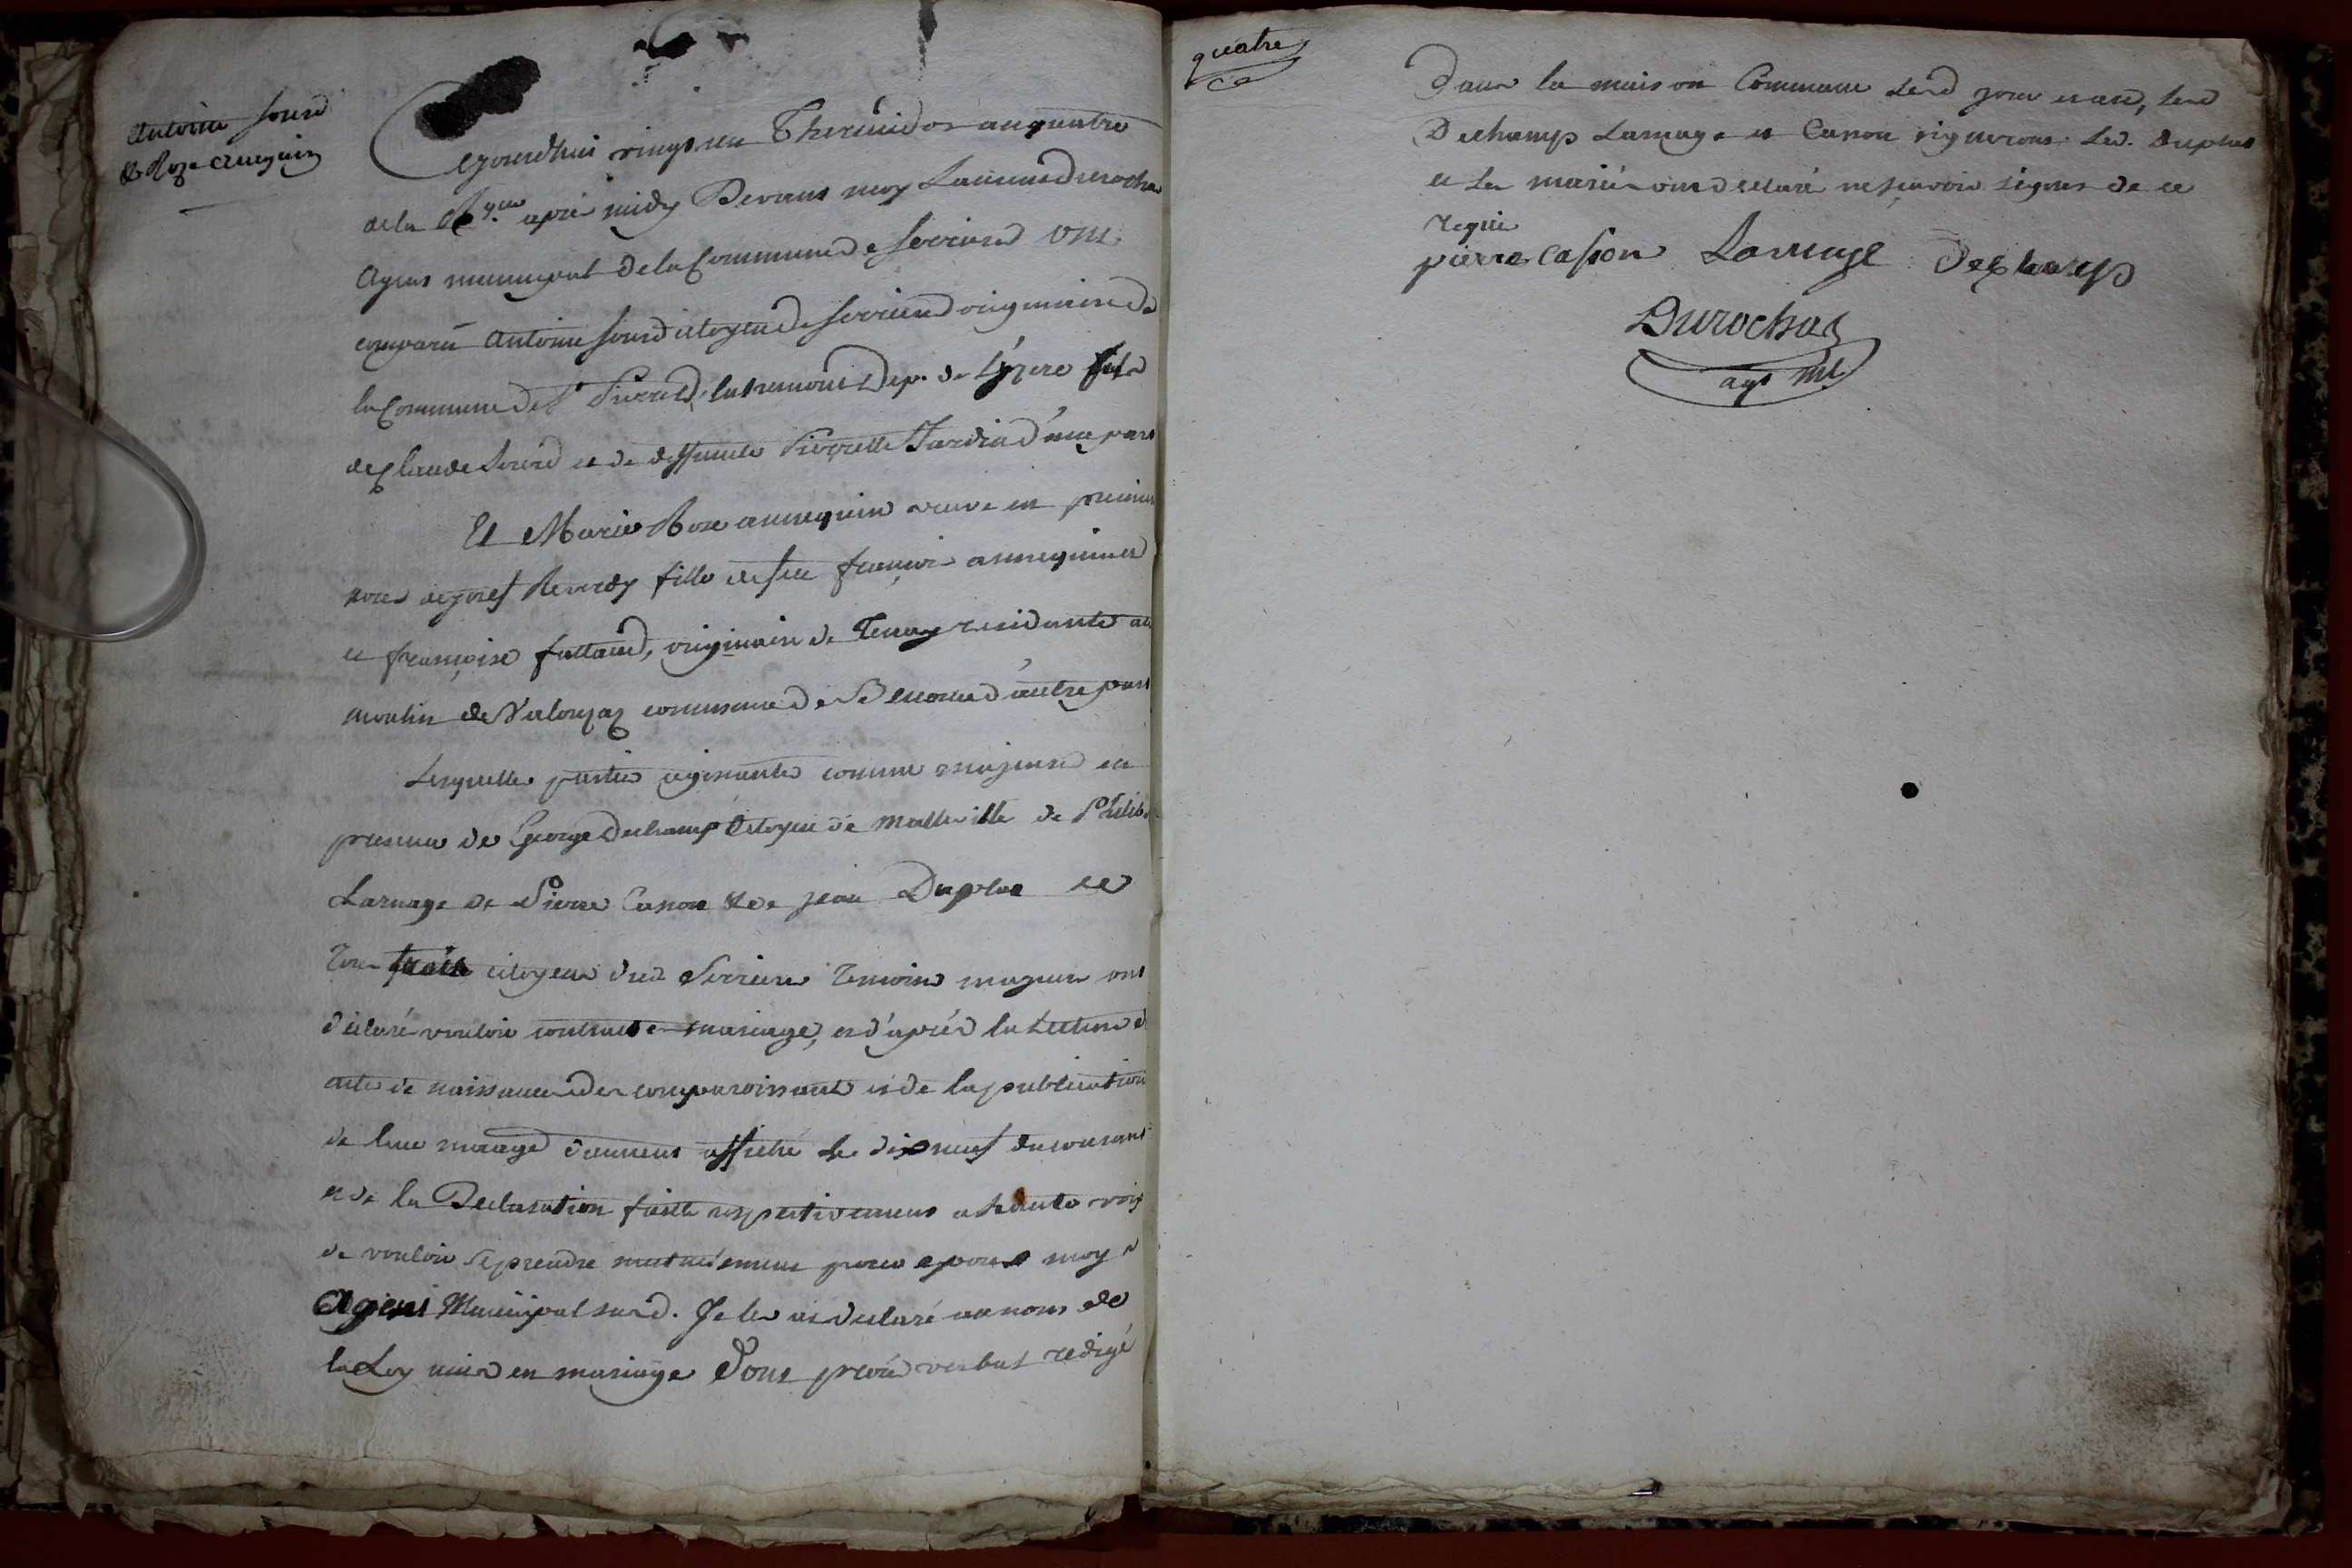 Antoine Sourd
& Roze Anequin
Cejourdhui vingt un Thermidor an quatre
de la Rp.que après midy Devant moy Durochat
Agent municipal de la Commune de Serriere ont
comparu Antoine Sourd citoyen de Serriere originaire de
la Commune de St Pierre Dep. de L'yzere fils
de Claude Sourd et de deffunte Pierrette Jardin d'une part
Et Marie Rose annequin veuve en premier
noces de josef Reverdy fille de feu françois annequin et
et françoise fattoud, originaire de Tenay residante au
moulin de commune de d'autre part
Lesquelles parties agissantes comme majeures en
presence de George Dechamp Citoyen de Malleville de Philib
Larnage de Pierre Cason & de jean Duplas
Tous citoyens dud Serriere Temoins majeurs ont
déclaré vouloir contracter mariage, et d'après la Lecture d
acte de naissance des comparoissants et de la publication
de leur mariage duement affiché Le dix neuf du courant
et de la Declaration faitte respectivement a haute voix
de vouloir se prendre mutuelement pour epoux moy
Agent Municipal sus d. Je les ai declaré au nom de
la Loy unis en mariage Dont procès verbal redigé
quatre
Dans la maison Commune Lesd jour et an, Lesd
Dechamp Larnage et Cason signerons Led. Duplas
et les mariés ont declaré ne sçavoir signer de ce
requis
pierre Cason Larnage Dechamp
Durochat
agt ml